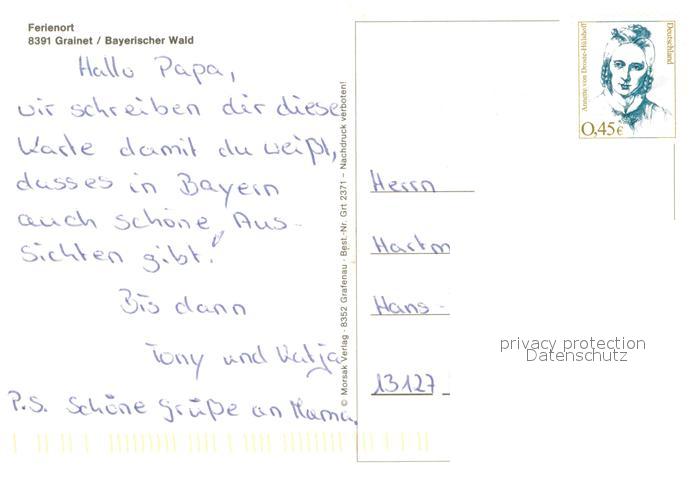 Ferienort
8391 Grainet / Bayerischer Wald
Hallo Papa,
wir schreiben dir diese
Karte damit du weißt,
dass es in Bayern
auch schöne Aus-
sichten gibt!
Bis dann
Tony und Katja
P.S. Schöne Grüße an Mama.
© Morsak Verlag · 8352 Grafenau · Best.-Nr. Grt 2371 – Nachdruck verboten!
Annette von Droste-Hülshoff
Deutschland
0,45€
Herrn
Hartm
Hans-
13127
privacy protection
Datenschutz